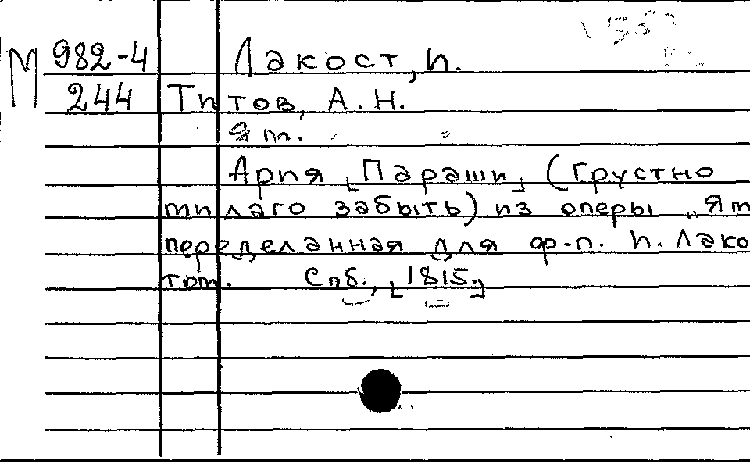 М 982-4 Лакост, п.
244 Титов, А. Н.
Ям.
Ария [Параши] (Грустно
милаго забыть) из оперы „Ям
переделанная для ф-п. п. Лако
том. Спб., [1815.]